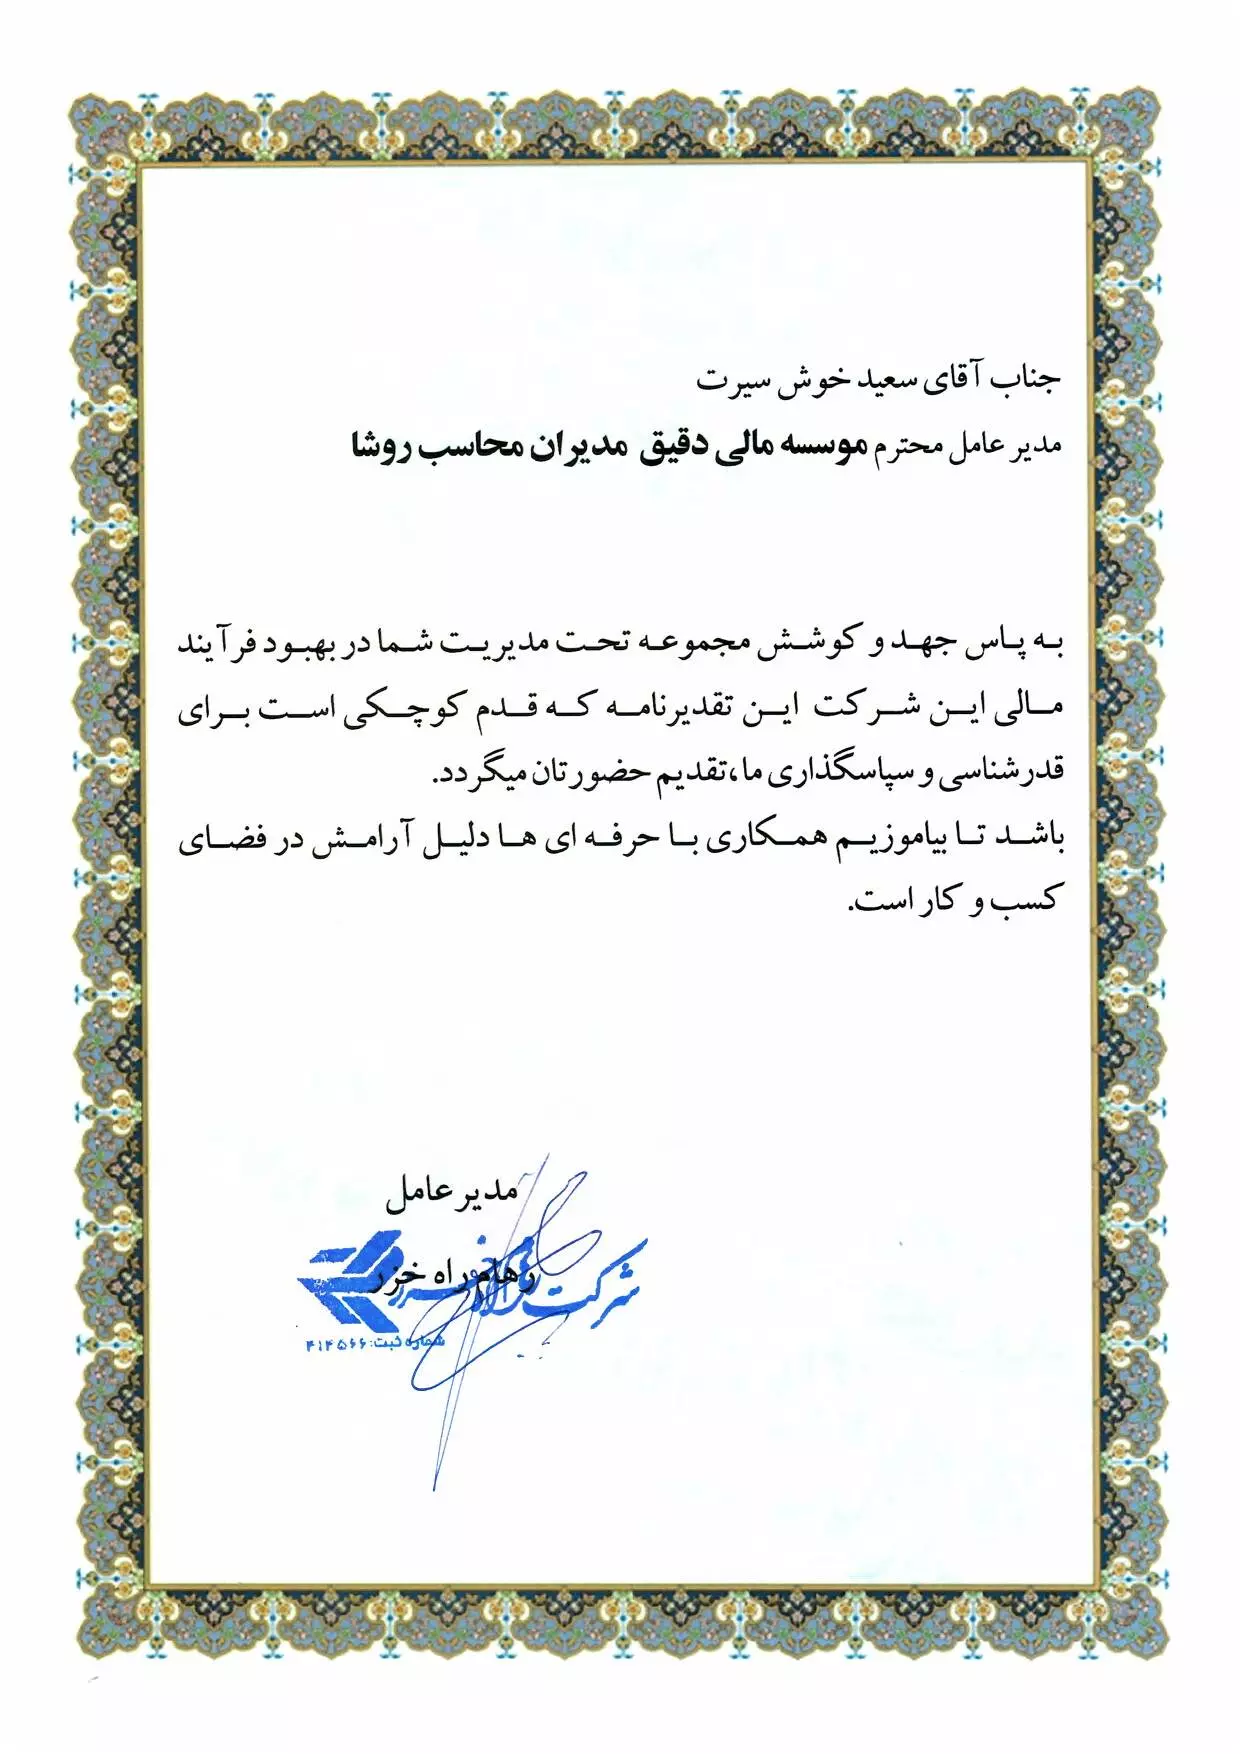 جناب آقای سعید خوش سیرت
مدیر عامل محترم موسسه مالی دقیق مدیران محاسب روشا
به پاس جهد و کوشش مجموعه تحت مدیریت شما در بهبود فرآیند
مالی این شرکت این تقدیرنامه که قدم کوچکی است برای
قدرشناسی و سپاسگذاری ما،تقدیم حضورتان میگردد.
باشد تا بیاموزیم همکاری با حرفه ای ها دلیل آرامش در فضای
کسب و کار است.
مدیر عامل
رهام راه خزر
شرکت رهام راه خزر
شماره ثبت: ۴۱۴۵۶۶